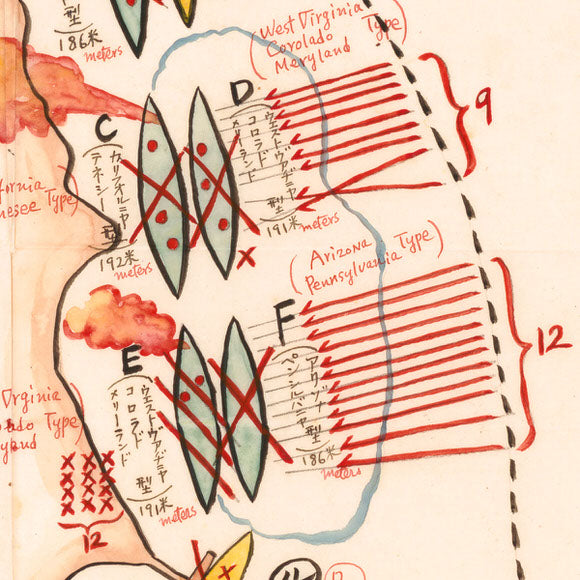 型
186米
meters
(West Virginia
Corolado
Meryland
Type)
9
D
C
(ウエストヴアヂニヤ
コロラド
メリーランド)
型
191米
meters
(カリフオルニヤ
テネシー)
型
192米
meters
Type)
(Arizona
Pennsylvania
Type)
12
F
E
(アリゾナ
ペンシルバニヤ)
型
186米
meters
(ウエストヴアヂニヤ
コロラド
メリーランド)
型
191米
meters
Type)
12